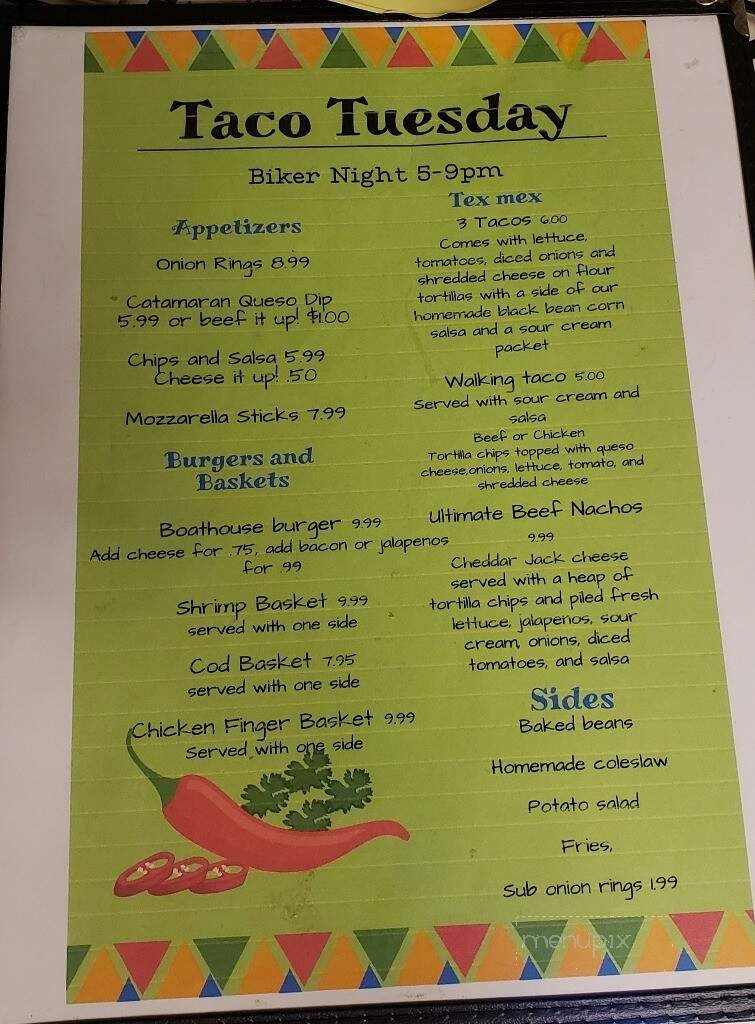 Taco Tuesday
Biker Night 5-9pm
Appetizers
Onion Rings 8.99
Catamaran Queso Dip
5.99 or beef it up! $1.00
Chips and Salsa 5.99
Cheese it up! .50
Mozzarella Sticks 7.99
Burgers and
Baskets
Boathouse burger 9.99
Add cheese for .75, add bacon or jalapenos
for .99
Shrimp Basket 9.99
served with one side
Cod Basket 7.95
served with one side
Chicken Finger Basket 9.99
Served with one side
Tex mex
3 Tacos 6.00
Comes with lettuce,
tomatoes, diced onions and
shredded cheese on flour
tortillas with a side of our
homemade black bean corn
salsa and a sour cream
packet
Walking taco 5.00
Served with sour cream and
salsa
Beef or Chicken
Tortilla chips topped with queso
cheese,onions, lettuce, tomato, and
shredded cheese
Ultimate Beef Nachos
9.99
Cheddar Jack cheese
served with a heap of
tortilla chips and piled fresh
lettuce, jalapenos, sour
cream, onions, diced
tomatoes, and salsa
Sides
Baked beans
Homemade coleslaw
Potato salad
Fries,
Sub onion rings 1.99
menupix